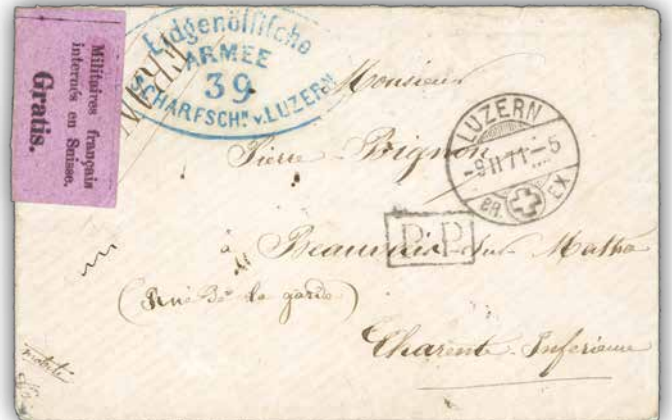 Militaires français
internés en Suisse.
Gratis.
Eidgenössische
ARMEE
39
SCHARFSCHN v. LUZERN
LUZERN
-9 II 71--5
BR. EX.
Monsieur
Pierre Bignon
P.P
à Beauvais sur Matha
(Rue de la garde)
Charente Inférieure